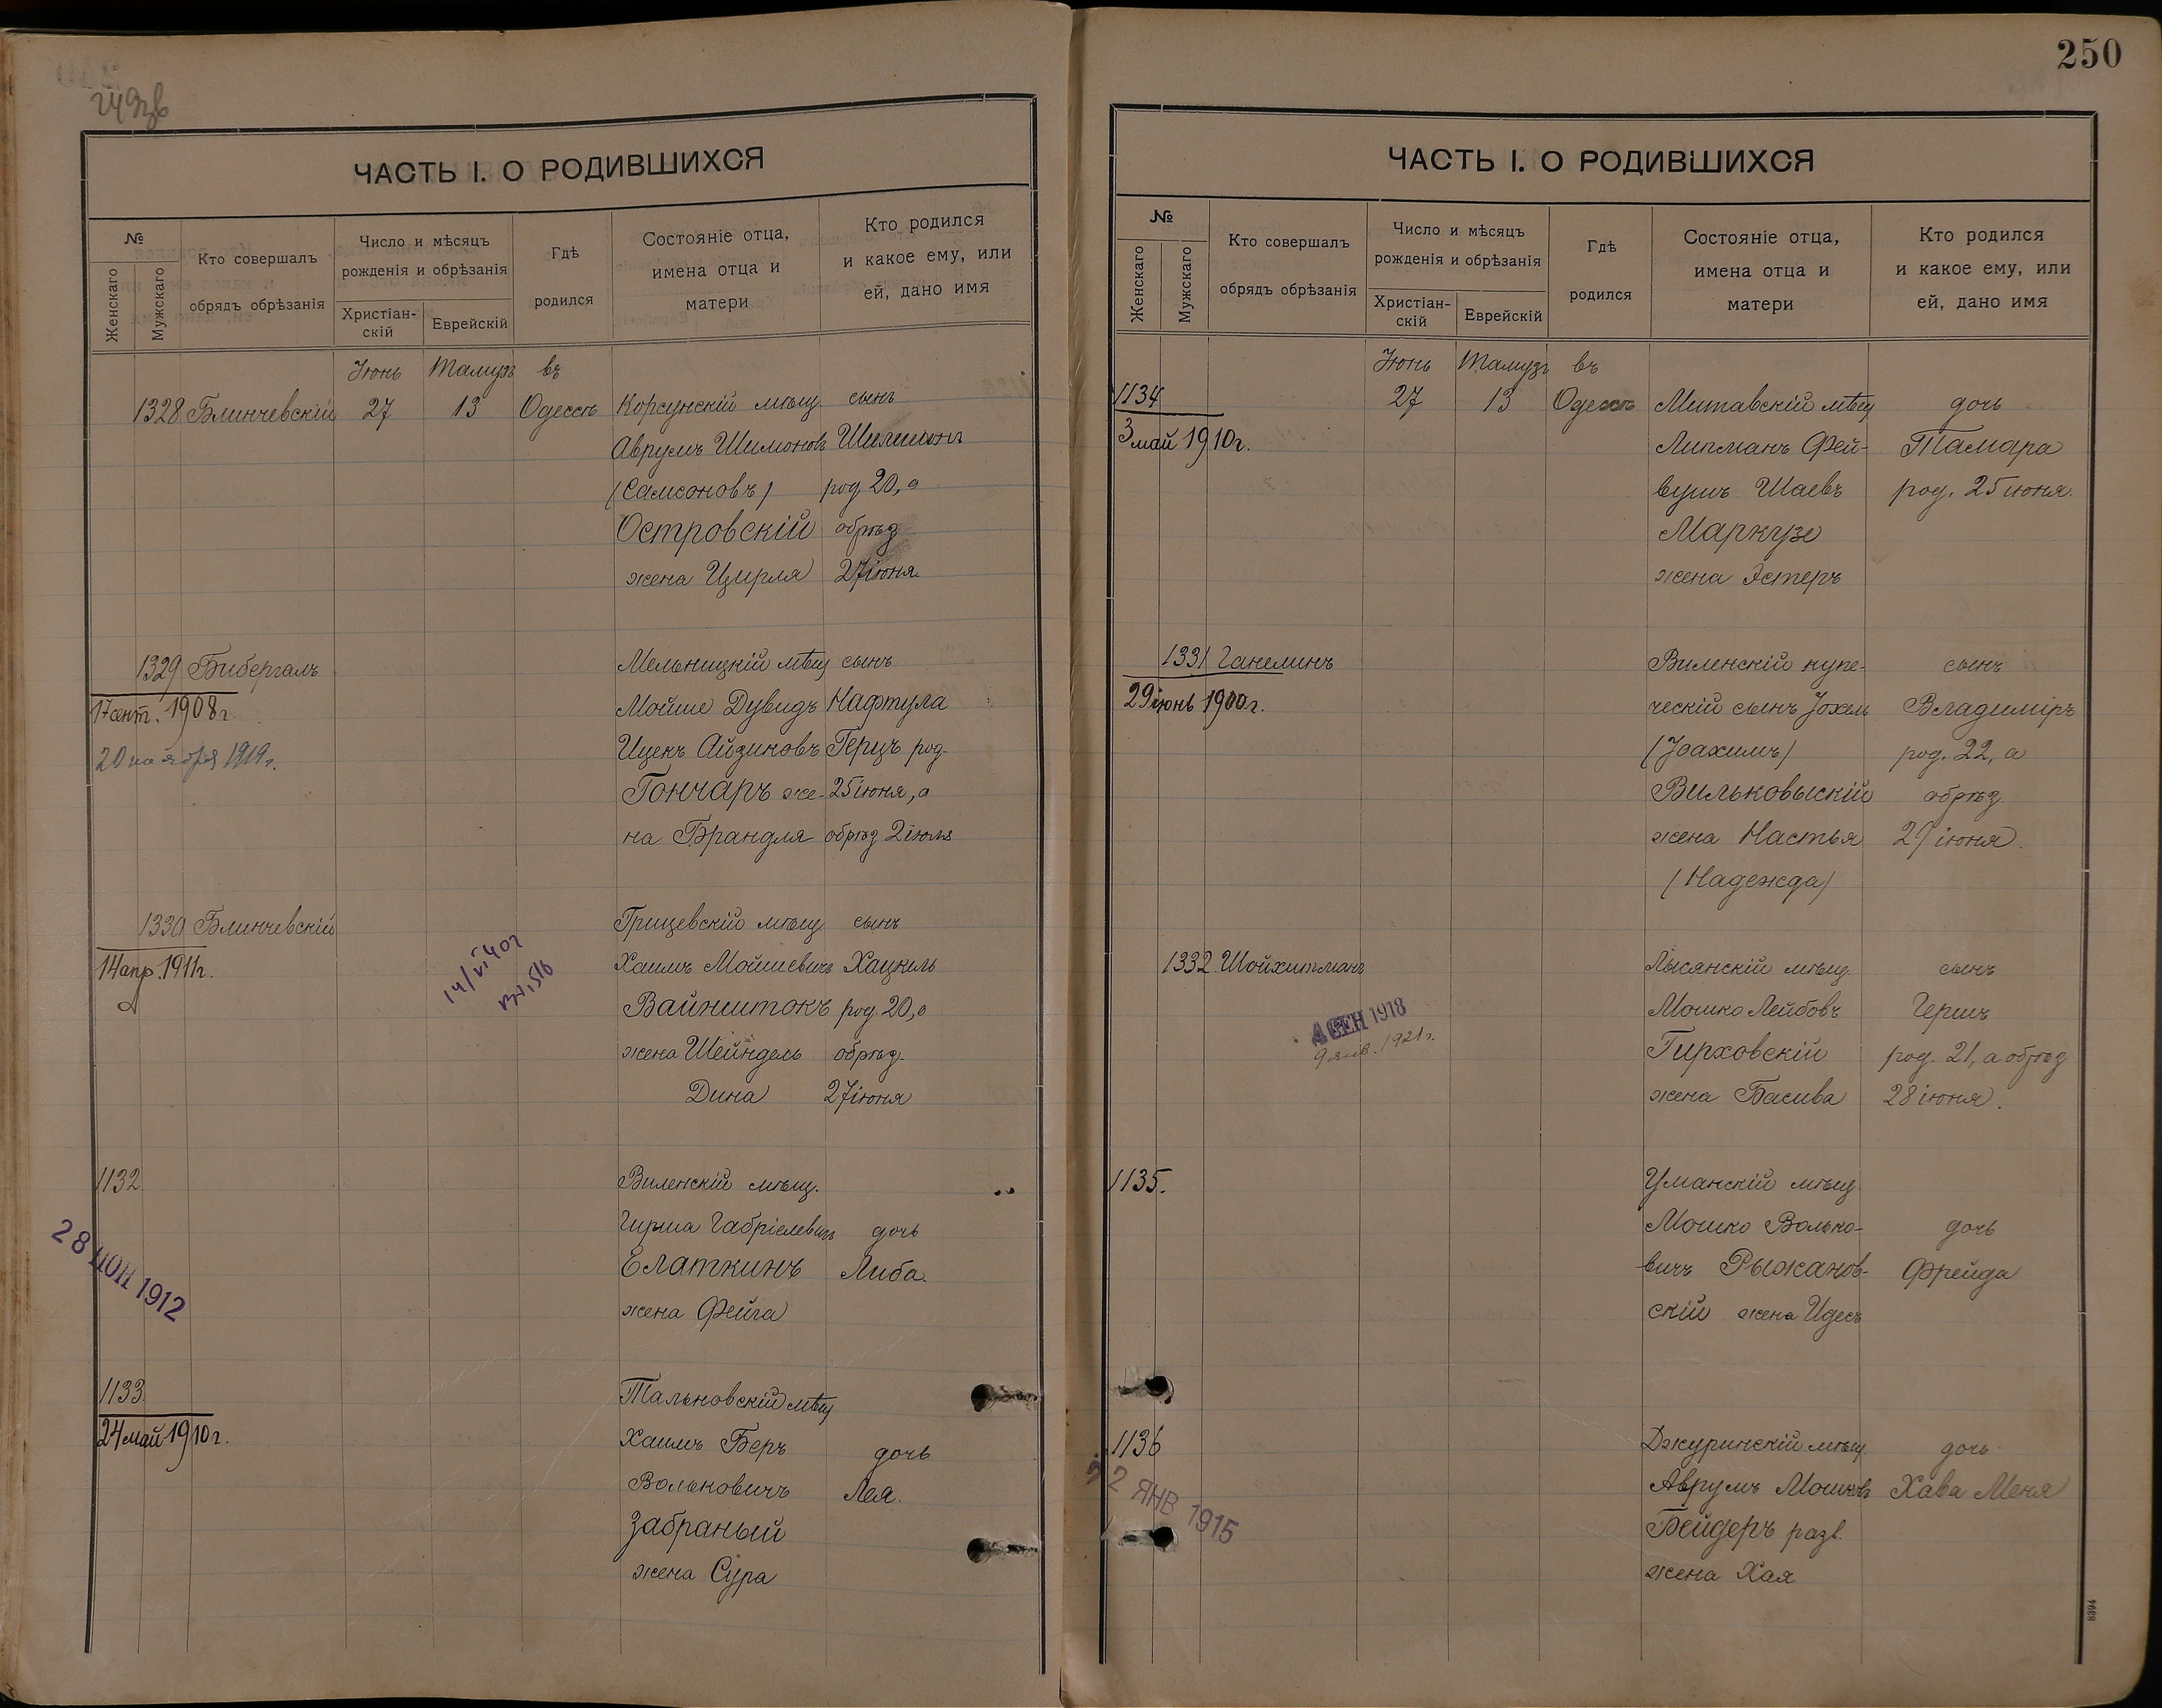 249зв
ЧАСТЬ I. О РОДИВШИХСЯ
№
Женскаго
Мужскаго
Кто совершалъ
обрядъ обрѣзанія
Число и мѣсяцъ
рожденія и обрѣзанія
Христіан-
скій
Еврейскій
Гдѣ
родился
Состояніе отца,
имена отца и
матери
Кто родился
и какое ему, или
ей, дано имя
Іюнь Тамузъ въ
1328 Блинчевскій 27 13 Одессѣ Корсунскій мѣщ. сынъ
Аврумъ Шимоновъ Шимшонъ
(Самсоновъ) род 20, а
Островскій обрѣз
жена Цирля 27 іюня.
1329 Бибергалъ Мельницкій мѣщ сынъ
17 сент. 1908 г. Мойше Дувидъ Нафтула
20 ноября 1919 г. Ицекъ Айзиковъ Герцъ род.
Гончаръ же- 25 іюня, а
на Брандля обрѣз 2 іюля
1330 Блинчевскій Грицевскій мѣщ. сынъ
14 апр. 1911 г. Хаимъ Мойшевичъ Хацкиль
14/VI 40 г
Вайнштокъ род 20, а
жена Шейндель обрѣз.
Дина 27 іюня
1132 Виленскій мѣщ.
Гирша Габріелевичъ дочь
28 НОЯ 1912
Елаткинъ Либа.
жена Фейга
1133. Тальновскій мѣщ
24 май 1910 г.
Хаимъ Беръ дочь
Вольковичъ Лея.
Забраный
жена Сура
250
ЧАСТЬ I. О РОДИВШИХСЯ
№
Женскаго
Мужскаго
Кто совершалъ
обрядъ обрѣзанія
Число и мѣсяцъ
рожденія и обрѣзанія
Христіан-
скій
Еврейскій
Гдѣ
родился
Состояніе отца,
имена отца и
матери
Кто родился
и какое ему, или
ей, дано имя
Іюнь Тамузъ въ
1134 27 13 Одессѣ Митавскій мѣщ дочь
3 май 1910 г. Липманъ Фей- Тамара
вушъ Шаевъ род. 25 іюня.
Маркузе
жена Эстеръ
1331 Ганелинъ Виленскій купе- сынъ
29 іюнь 1900 г. ческій сынъ Іохель Владиміръ
(Іоахимъ) род. 22, а
Вильковыскій обрѣз.
жена Настья 29 іюня.
(Надежда)
1332 Шойхитманъ Лысянскій мѣщ. сынъ
СЕН 1918 Мошко Лейбовъ Гершъ
9 янв. 1921 г.
Гирховскій род. 21, а обрѣз
жена Басива 28 іюня.
1135. Уманскій мѣщ.
Мошко Волько- дочь
вичъ Рыжанов- Фрейда
скій жена Идесъ
1136 Джуринскій мѣщ. дочь
2 ЯНВ 1915
Аврумъ Мошковъ Хава Меня
Бейдеръ разв.
жена Хая
8394